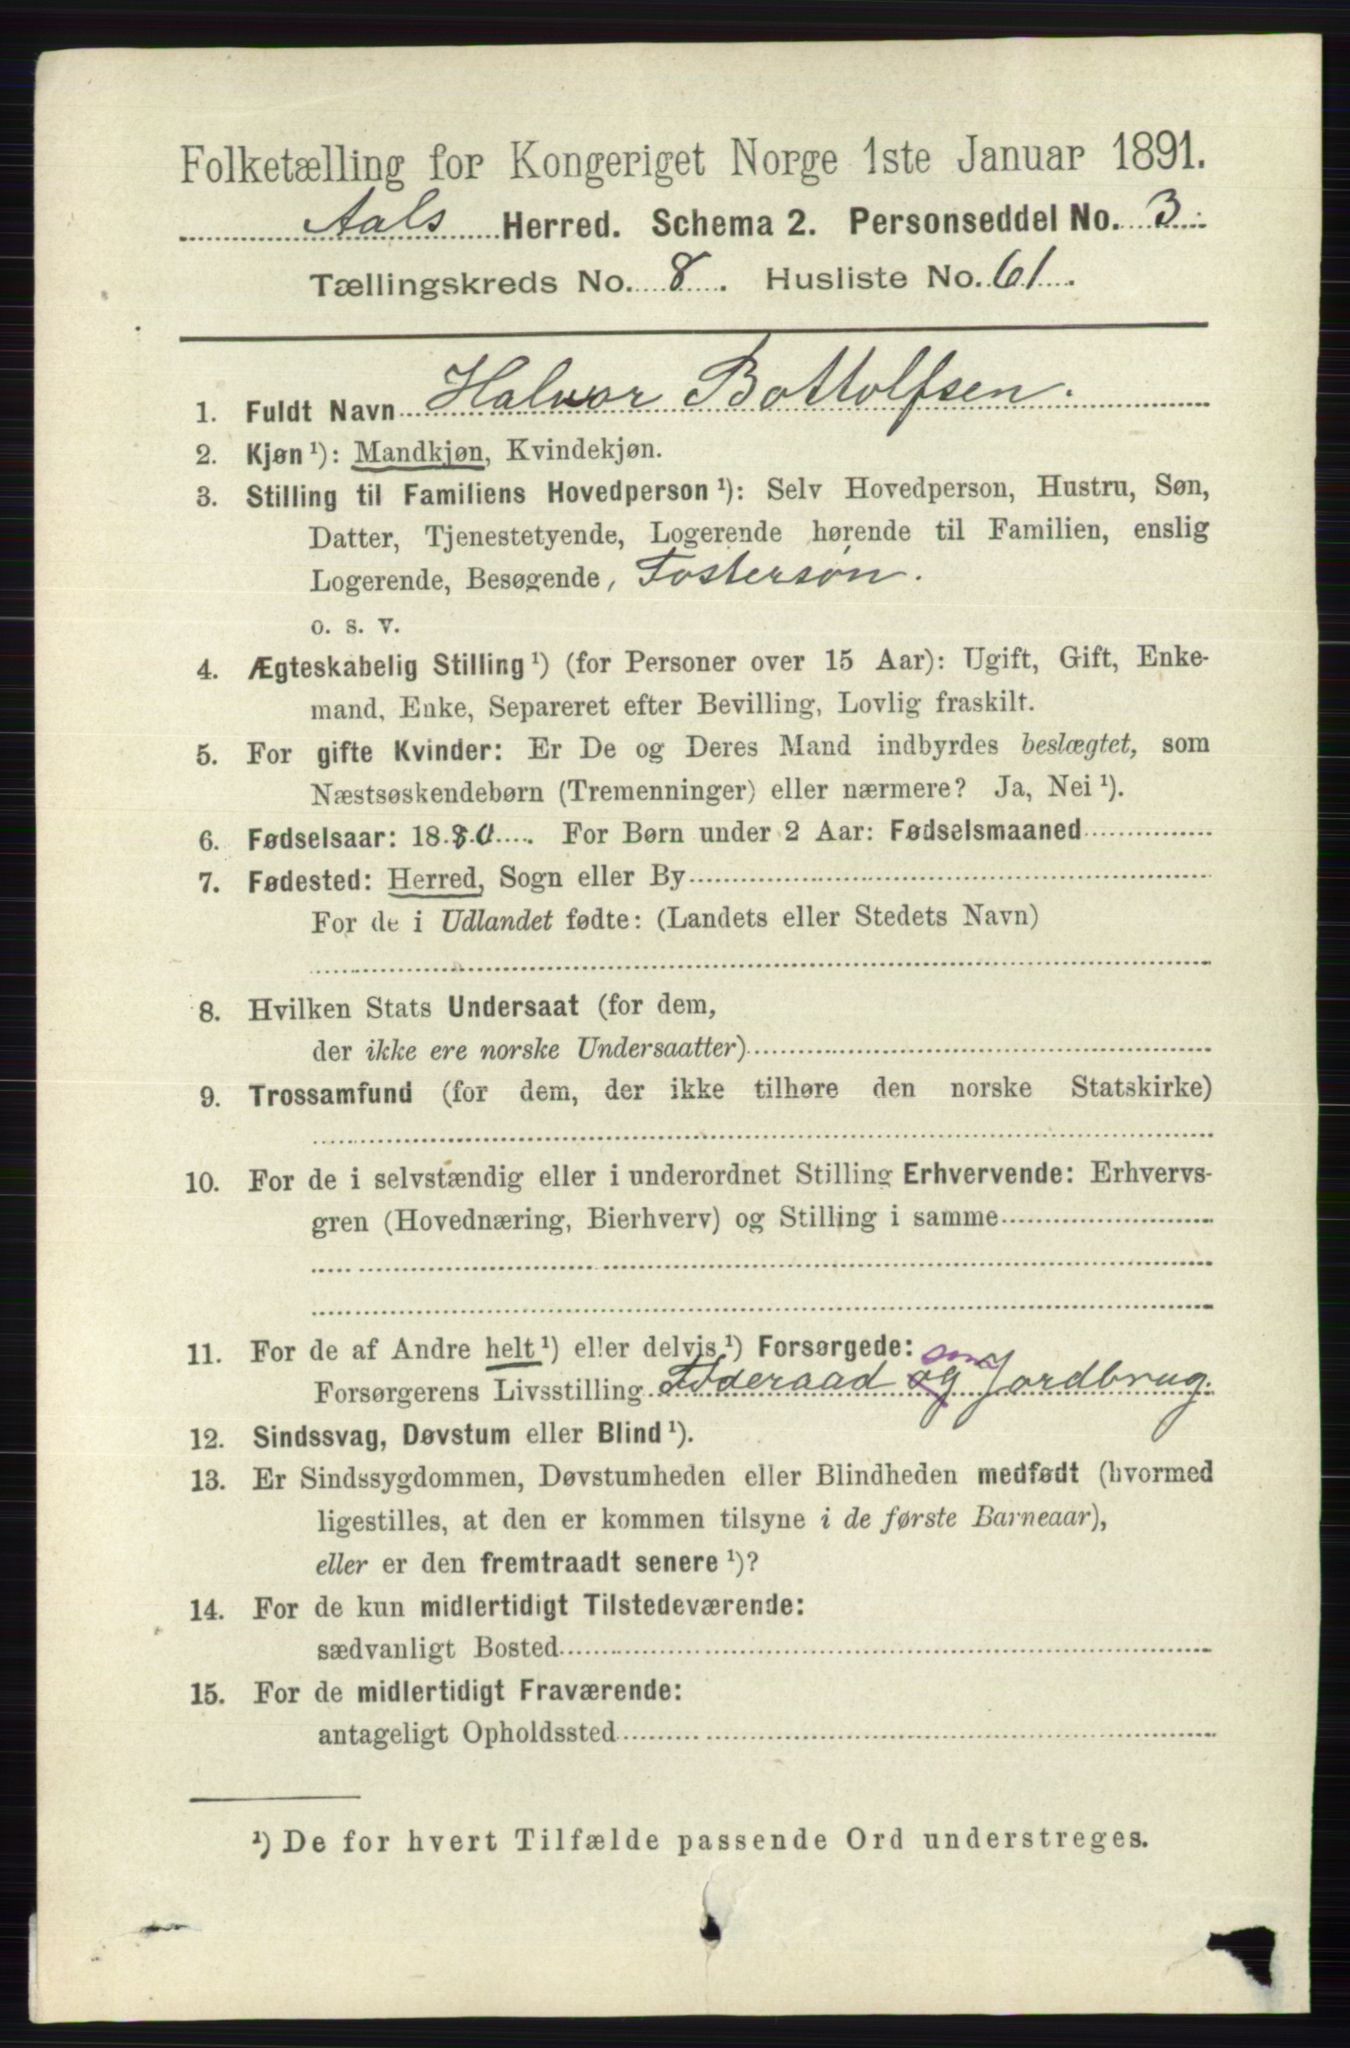 Folketælling for Kongeriget Norge 1ste Januar 1891.
Aals Herred. Schema 2. Personseddel No. 3
Tællingskreds No. 8. Husliste No. 61.
1. Fuldt Navn Halvor Bottolfsen.
2. Kjøn¹): Mandkjøn, Kvindekjøn.
3. Stilling til Familiens Hovedperson¹): Selv Hovedperson, Hustru, Søn,
Datter, Tjenestetyende, Logerende hørende til Familien, enslig
Logerende, Besøgende, Fostersøn.
o. s. v.
4. Ægteskabelig Stilling¹) (for Personer over 15 Aar): Ugift, Gift, Enke-
mand, Enke, Separeret efter Bevilling, Lovlig fraskilt.
5. For gifte Kvinder: Er De og Deres Mand indbyrdes beslægtet, som
Næstsøskendebørn (Tremenninger) eller nærmere? Ja, Nei¹).
6. Fødselsaar: 1880. For Børn under 2 Aar: Fødselsmaaned
7. Fødested: Herred, Sogn eller By
For de i Udlandet fødte: (Landets eller Stedets Navn)
8. Hvilken Stats Undersaat (for dem,
der ikke ere norske Undersaatter)
9. Trossamfund (for dem, der ikke tilhøre den norske Statskirke)
10. For de i selvstændig eller i underordnet Stilling Erhvervende: Erhvervs-
gren (Hovednæring, Bierhverv) og Stilling i samme
11. For de af Andre helt¹) eller delvis¹) Forsørgede:
Forsørgerens Livsstilling Føderaad og Jordbrug.
12. Sindssvag, Døvstum eller Blind¹).
13. Er Sindssygdommen, Døvstumheden eller Blindheden medfødt (hvormed
ligestilles, at den er kommen tilsyne i de første Barneaar),
eller er den fremtraadt senere¹)?
14. For de kun midlertidigt Tilstedeværende:
sædvanligt Bosted
15. For de midlertidigt Fraværende:
antageligt Opholdssted
¹) De for hvert Tilfælde passende Ord understreges.